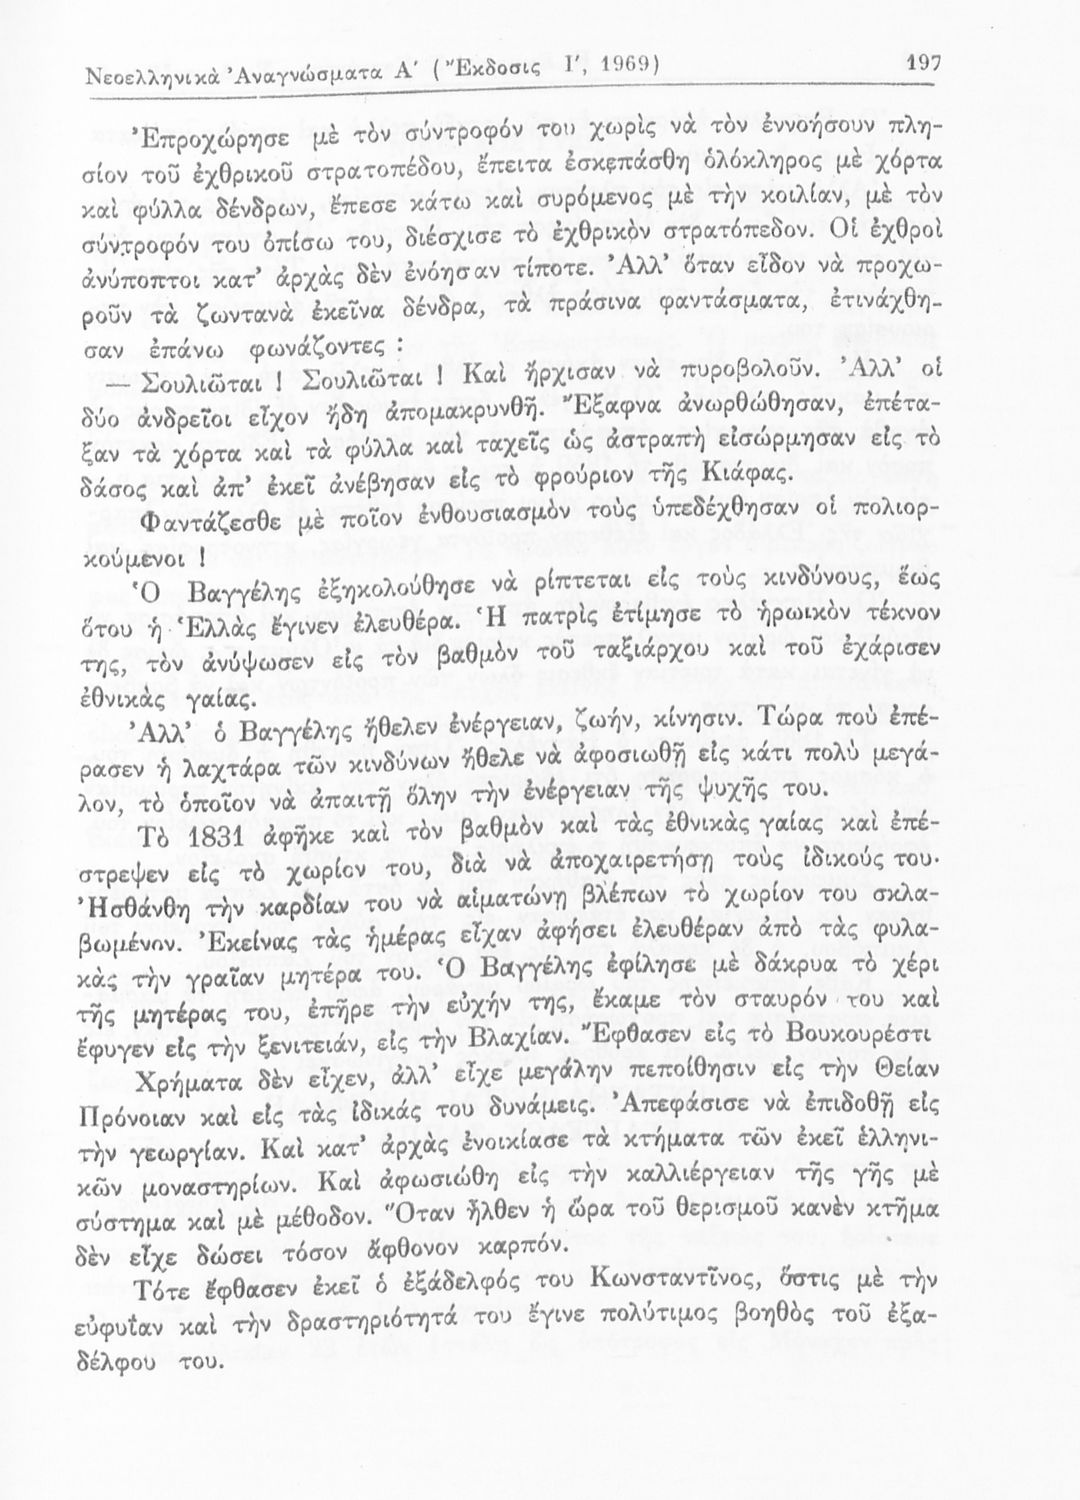 Νεοελληνικὰ Ἀναγνώσματα Α΄ (Ἔκδοσις Ι΄, 1969) 197
Ἐπροχώρησε μὲ τὸν σύντροφόν του χωρὶς νὰ τὸν ἐννοήσουν πλη-
σίον τοῦ ἐχθρικοῦ στρατοπέδου, ἔπειτα ἐσκεπάσθη ὁλόκληρος μὲ χόρτα
καὶ φύλλα δένδρων, ἔπεσε κάτω καὶ συρόμενος μὲ τὴν κοιλίαν, μὲ τὸν
σύντροφόν του ὀπίσω του, διέσχισε τὸ ἐχθρικὸν στρατόπεδον. Οἱ ἐχθροὶ
ἀνύποπτοι κατ’ ἀρχὰς δὲν ἐνόησαν τίποτε. Ἀλλ’ ὅταν εἶδον νὰ προχω-
ροῦν τὰ ζωντανὰ ἐκεῖνα δένδρα, τὰ πράσινα φαντάσματα, ἐτινάχθη-
σαν ἐπάνω φωνάζοντες :
— Σουλιῶται ! Σουλιῶται ! Καὶ ἤρχισαν νὰ πυροβολοῦν. Ἀλλ’ οἱ
δύο ἀνδρεῖοι εἶχον ἤδη ἀπομακρυνθῆ. Ἔξαφνα ἀνωρθώθησαν, ἐπέτα-
ξαν τὰ χόρτα καὶ τὰ φύλλα καὶ ταχεῖς ὡς ἀστραπὴ εἰσώρμησαν εἰς τὸ
δάσος καὶ ἀπ’ ἐκεῖ ἀνέβησαν εἰς τὸ φρούριον τῆς Κιάφας.
Φαντάζεσθε μὲ ποῖον ἐνθουσιασμὸν τοὺς ὑπεδέχθησαν οἱ πολιορ-
κούμενοι !
Ὁ Βαγγέλης ἐξηκολούθησε νὰ ρίπτεται εἰς τοὺς κινδύνους, ἕως
ὅτου ἡ Ἑλλὰς ἔγινεν ἐλευθέρα. Ἡ πατρὶς ἐτίμησε τὸ ἡρωικὸν τέκνον
της, τὸν ἀνύψωσεν εἰς τὸν βαθμὸν τοῦ ταξιάρχου καὶ τοῦ ἐχάρισεν
ἐθνικὰς γαίας.
Ἀλλ’ ὁ Βαγγέλης ἤθελεν ἐνέργειαν, ζωήν, κίνησιν. Τώρα ποὺ ἐπέ-
ρασεν ἡ λαχτάρα τῶν κινδύνων ἤθελε νὰ ἀφοσιωθῇ εἰς κάτι πολὺ μεγά-
λον, τὸ ὁποῖον νὰ ἀπαιτῇ ὅλην τὴν ἐνέργειαν τῆς ψυχῆς του.
Τὸ 1831 ἀφῆκε καὶ τὸν βαθμὸν καὶ τὰς ἐθνικὰς γαίας καὶ ἐπέ-
στρεψεν εἰς τὸ χωρίον του, διὰ νὰ ἀποχαιρετήσῃ τοὺς ἰδικούς του.
Ἠσθάνθη τὴν καρδίαν του νὰ αἱματώνῃ βλέπων τὸ χωρίον του σκλα-
βωμένον. Ἐκείνας τὰς ἡμέρας εἶχαν ἀφήσει ἐλευθέραν ἀπὸ τὰς φυλα-
κὰς τὴν γραῖαν μητέρα του. Ὁ Βαγγέλης ἐφίλησε μὲ δάκρυα τὸ χέρι
τῆς μητέρας του, ἐπῆρε τὴν εὐχήν της, ἔκαμε τὸν σταυρόν του καὶ
ἔφυγεν εἰς τὴν ξενιτειάν, εἰς τὴν Βλαχίαν. Ἔφθασεν εἰς τὸ Βουκουρέστι
Χρήματα δὲν εἶχεν, ἀλλ’ εἶχε μεγάλην πεποίθησιν εἰς τὴν Θείαν
Πρόνοιαν καὶ εἰς τὰς ἰδικάς του δυνάμεις. Ἀπεφάσισε νὰ ἐπιδοθῇ εἰς
τὴν γεωργίαν. Καὶ κατ’ ἀρχὰς ἐνοικίασε τὰ κτήματα τῶν ἐκεῖ ἑλληνι-
κῶν μοναστηρίων. Καὶ ἀφωσιώθη εἰς τὴν καλλιέργειαν τῆς γῆς μὲ
σύστημα καὶ μὲ μέθοδον. Ὅταν ἦλθεν ἡ ὥρα τοῦ θερισμοῦ κανὲν κτῆμα
δὲν εἶχε δώσει τόσον ἄφθονον καρπόν.
Τότε ἔφθασεν ἐκεῖ ὁ ἐξάδελφός του Κωνσταντῖνος, ὅστις μὲ τὴν
εὐφυΐαν καὶ τὴν δραστηριότητά του ἔγινε πολύτιμος βοηθὸς τοῦ ἐξα-
δέλφου του.